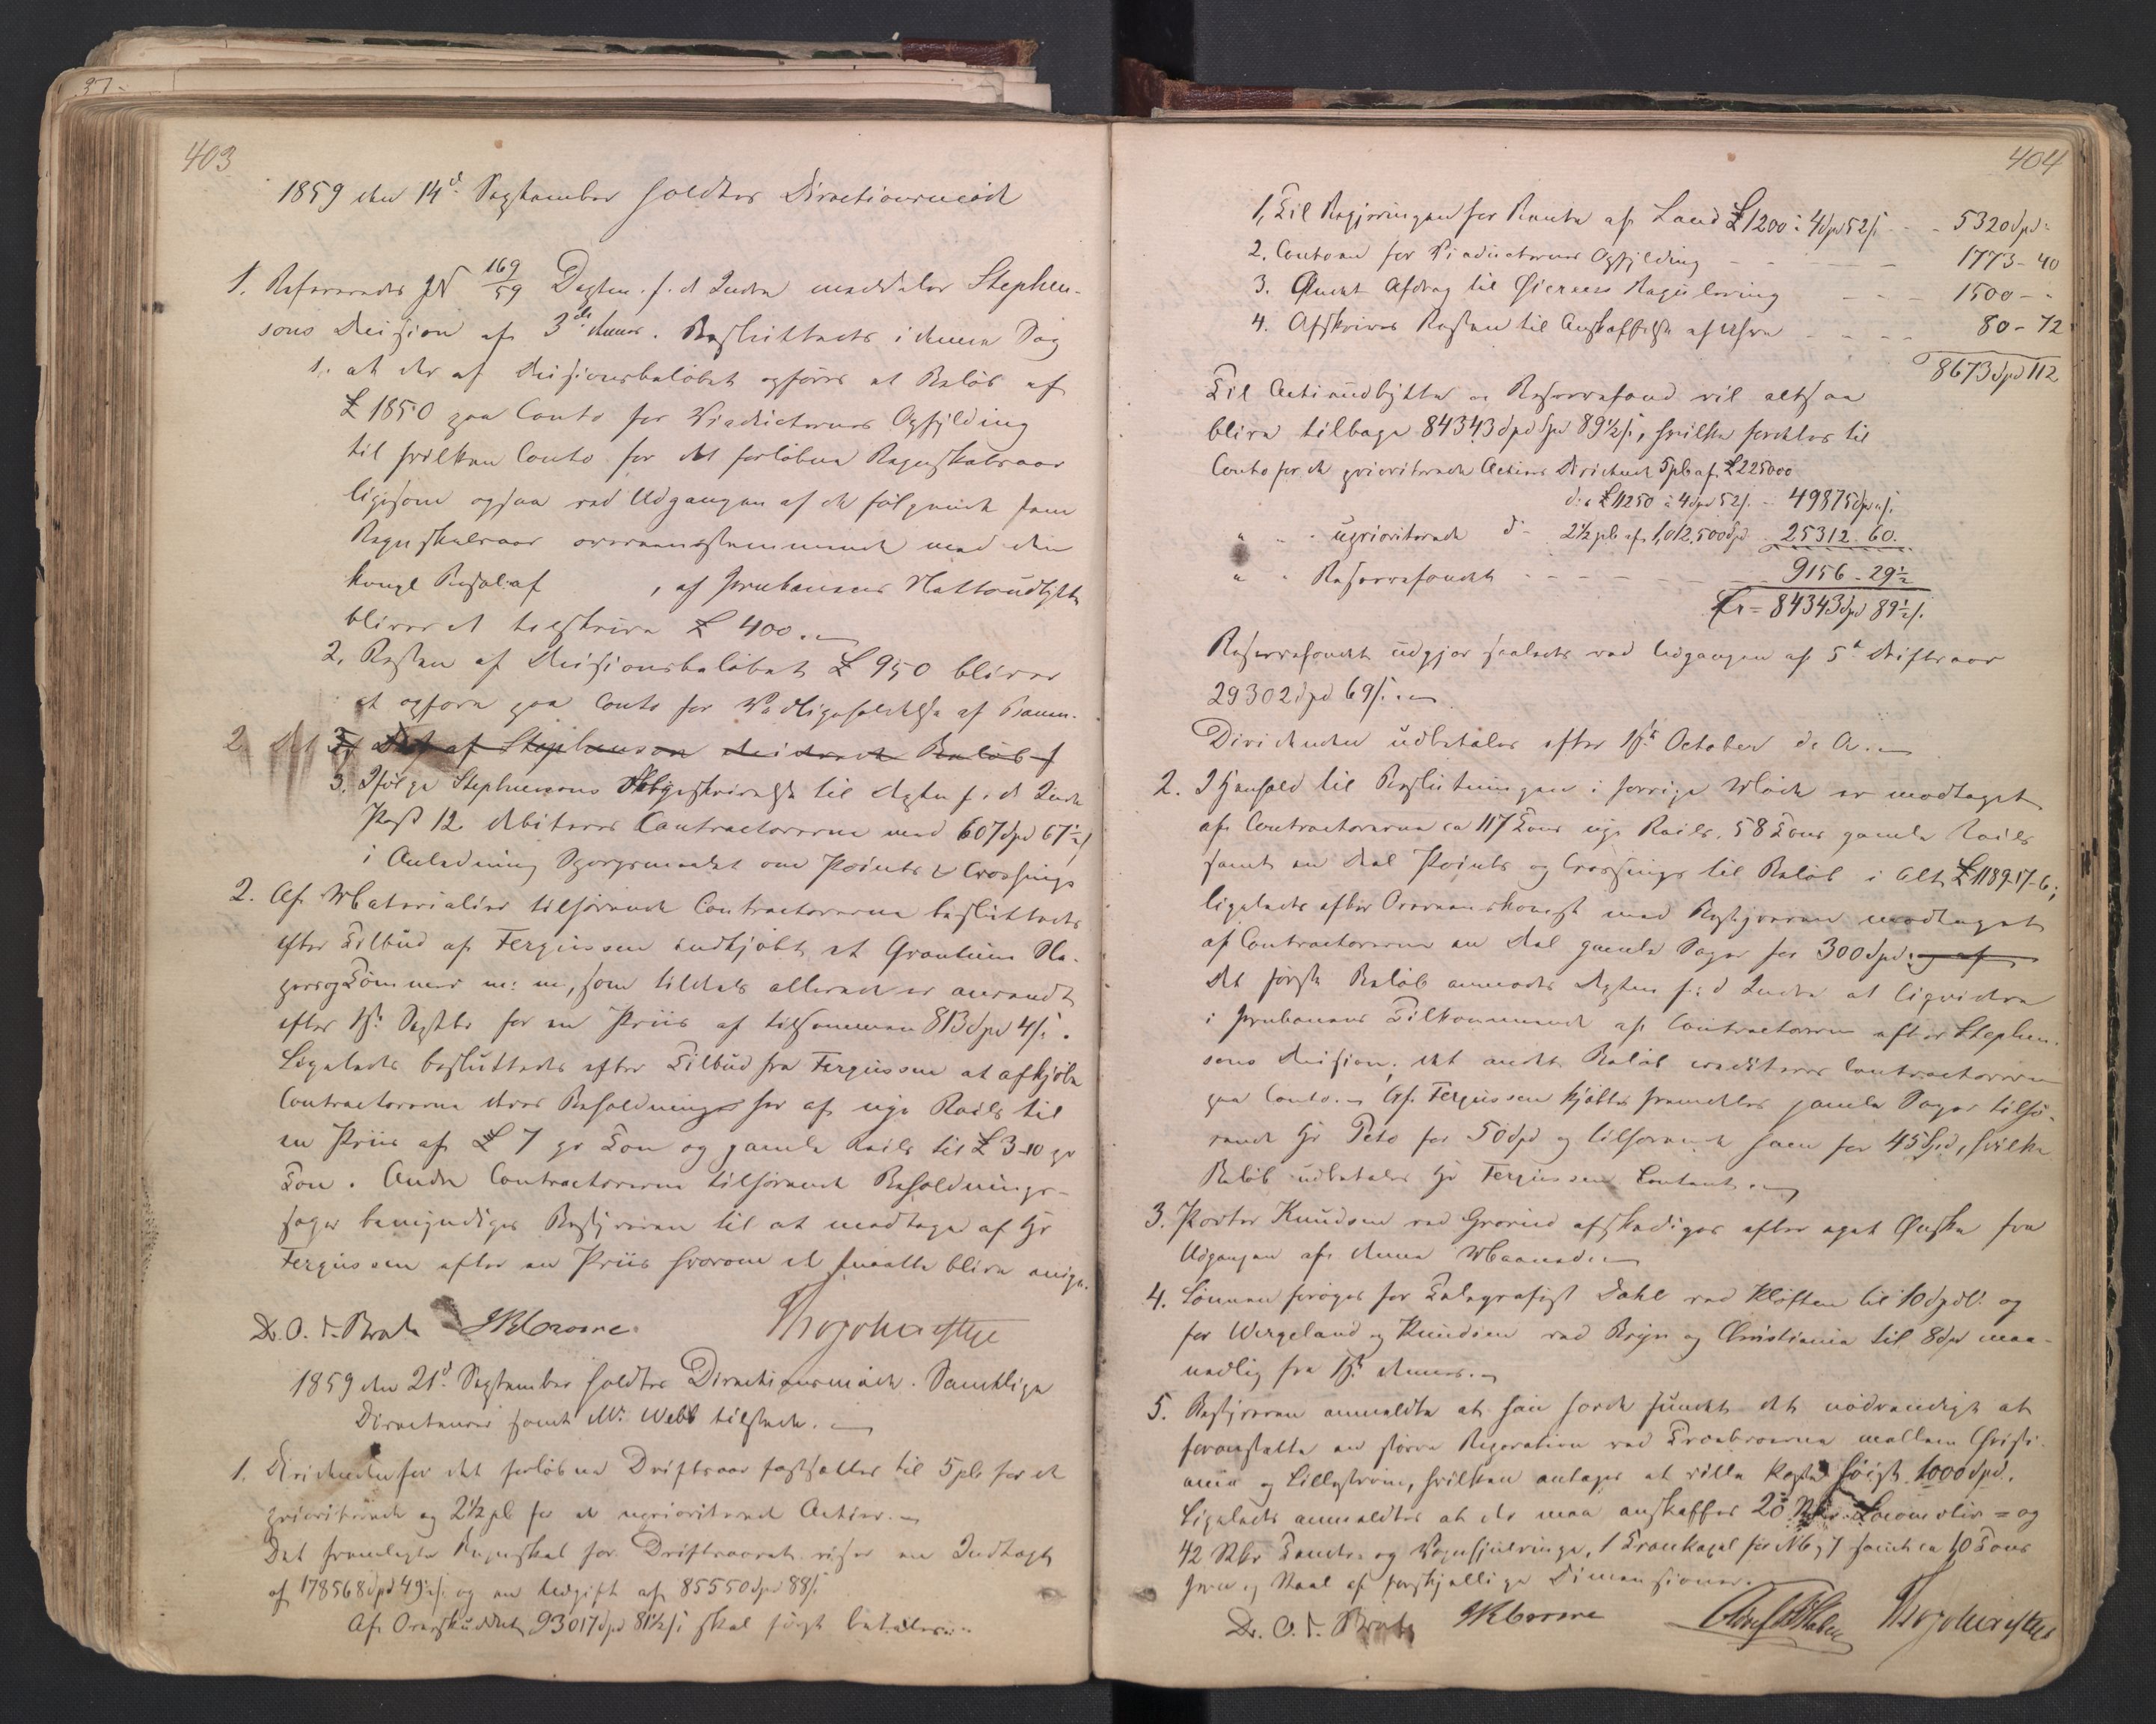 403
1859 den 14d. September holdtes Directionsmöde
1. Refereredes JN 169/59 Depten. f. d. Indre meddeler Stephen-
sons Decision af 3die dennes. Besluttedes i denne Sag
1. at der af Decisionsbelöbet opföres et Belöb af
£ 1850 paa Conto for Viaducternes Opfyldning
til hvilken Conto for det forløbne Regnskabsaar
ligesom ogsaa ved Udgangen af de følgende fem
Regnskabsaar overeensstemmende med den
kongl Resol: af , af Jernbanens Nettoudbytte
bliver at tilskrive £ 400.
2. Resten af Decisionsbeløbet £ 950 bliver
at opføre paa Conto for Vedligeholdelse af Banen.
2. Det 3, Det af Stephenson deciderede Beløb f
3. Ifølge Stephensons Skrivelse til Depten f. d. Indre
Post 12 debiteres Contractorerne med 607 Spd 67½ s
i Anledning Spørgsmaalet om Points & Crossings
2. Af Materialier tilhørende Contractorerne besluttedes
efter Tilbud af Fergusson indkjøbt et Qvantum
og Tömmer m: m, som tildels allerede er anvendt
efter 1ste Septbr for en Priis af tilsammen 813 Spd 4 s.
Ligeledes besluttedes efter Tilbud fra Fergusson at afkjøbe
Contractorerne deres Beholdninger af nye Rails til
en Priis af £ 7 pr Ton og gamle Rails til £ 3-10 pr
Ton. Andre Contractorerne tilhørende Beholdnings-
sager bemyndiges Bestyreren til at modtage af Hr
Fergusson efter en Priis hvorom de maatte blive enige.
Dr. O. J. Broch JRCrowe Thv. Meyer
1859 den 21d. September holdtes Directionsmøde. Samtlige
Directeurer samt Mr. Webb tilstede.
1. Dividenden for det forløbne Driftsaar fastsættes til 5 pCt for de
prioriterede og 2½ pC for de uprioriterede Actier.
Det fremlagte Regnskab for Driftsaaret viser en Indtægt
af 178568 Spd 49½ s. og en Udgift af 85550 Spd 88 s
Af Overskuddet 93017 Spd 81½ s skal først betales:
404
1, Til Regjeringen for Rente af Laan £ 1200 à 4 Spd 52 s - - 5320 Spd "
2. Contoen for Viaducternes Opfyldning - - - 1773 - 40
3. Andet Afdrag til Øierens Regulering - - - 1500 - "
4. Afskrives Resten til Anskaffelse af Uhre - - - 80 - 72
8673 Spd 112
Til Actieudbytte og Reservefond vil altsaa
blive tilbage 84343 Spd 89½ s, hvilke fordeles til
Conto for de prioriterede Actiers Dividende 5 pC af £ 225000
d: e £ 11250 à 4 Spd 52 s. - 49875 Spd " s.
" " - uprioriterede d- 2½ pC af 1,012,500 Spd 25312. 60.
" - Reservefondet - - - 9156 - 29½
Er = 84343 Spd 89½ s.
Reservefondet udgjør saaledes ved Udgangen af 5te Driftsaar
29302 Spd 69 s.
Dividenden udbetales efter 15de October d. A.
2. I Henhold til Beslutningen i forrige Møde er modtaget
af Contractorerne ca 117 Tons nye Rails, 58 Tons gamle Rails
samt en Deel Points og Crossings til Beløb i Alt £ 1189-17-6;
ligeledes efter Overeenskomst med Bestyreren modtaget
af Contractorerne en Deel gamle Sager for 300 Spd. og af
Det første Beløb anmodes Depten f: d Indre at liqvidere
i Jernbanens Tilkommende af Contractorerne efter Stephen-
sons Decision, det andet Beløb crediteres Contractorerne
paa Conto. Af Fergusson kjøbtes fremdeles gamle Sager tilhø-
rende Hr Peto for 50 Spd og tilhørende ham for 45 Spd, hvilke
Beløb udbetales Hr Fergusson Contant.
3. Porter Knudsen ved Grorud afskediges efter eget Ønske fra
Udgangen af denne Maaned.
4. Lønnen forøges for Telegrafist Dahl ved Kløften til 10 Spdl. og
for Wergeland og Knudsen ved Bryn og Christiania til 8 Spd maa-
nedlig fra 1ste dennes.
5. Bestyreren anmeldte at han havde fundet det nødvendigt at
foranstalte en større Reparation ved Træbroerne mellem Christi-
ania og Lillestrøm, hvilken antages at ville koste høist 1000 Spd.
Ligeledes anmeldtes at der maa anskaffes 20 Locomotiv= og
42 Tender og Vognhjulringe, 1 Krankaxel for N6 & 7 samt ca 10 Tons
Jern og Staal af forskjellige Dimensioner.
Dr. O. J. Broch JRCrowe Thv. Meyer